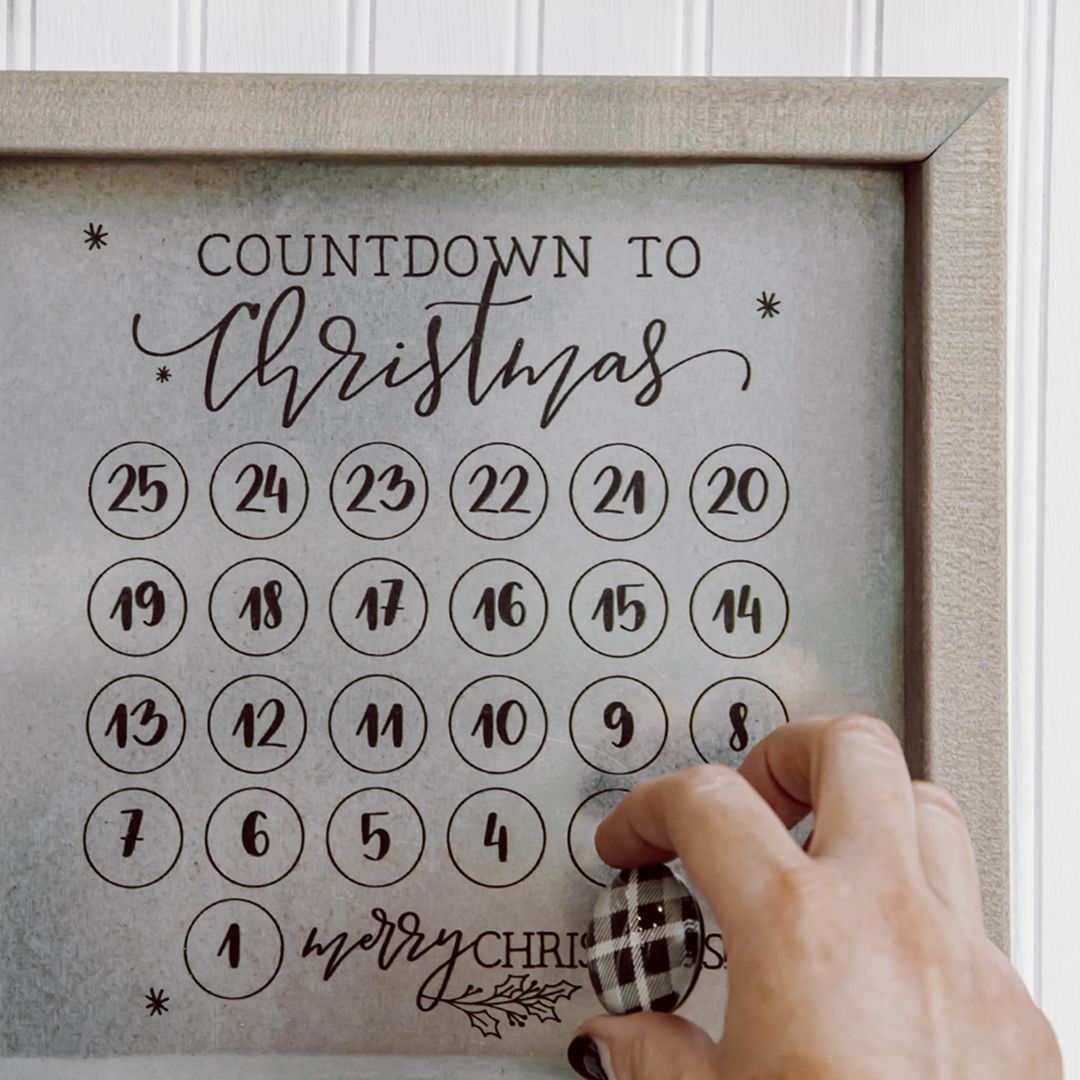 COUNTDOWN TO
Christmas
25 24 23 22 21 20
19 18 17 16 15 14
13 12 11 10 9 8
7 6 5 4
1 merry CHRIS